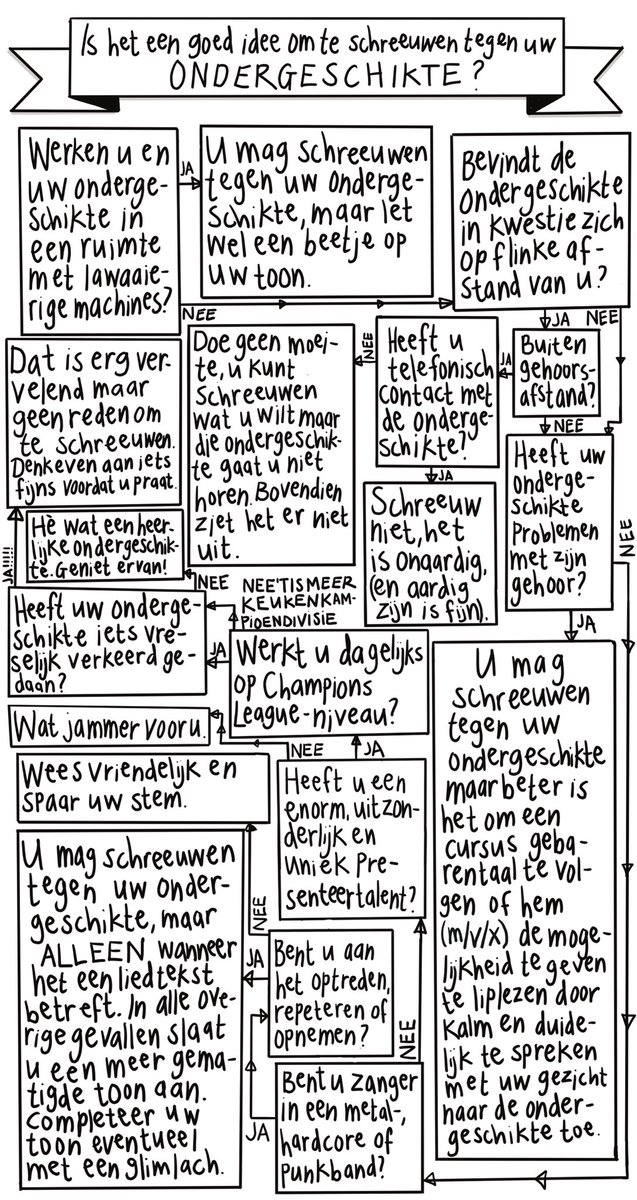 Is het een goed idee om te schreeuwen tegen uw
ONDERGESCHIKTE?
Werken u en
uw onderge-
schikte in
een ruimte
met lawaaie-
rige machines?
JA
U mag schreeuwen
tegen uw onderge-
schikte, maar let
wel een beetje op
uw toon.
NEE
Bevindt de
ondergeschikte
in kwestie zich
op flinke af-
stand van u?
JA
NEE
Buiten
gehoors-
afstand?
JA
NEE
Heeft u
telefonisch
contact met
de onderge-
schikte?
NEE
JA
Doe geen moei-
te, u kunt
schreeuwen
wat u wilt maar
die ondergeschik-
te gaat u niet
horen. Bovendien
ziet het er niet
uit.
Schreeuw
niet, het
is onaardig,
(en aardig
zijn is fijn).
Heeft uw
onderge-
schikte
problemen
met zijn
gehoor?
NEE
JA
U mag
schreeuwen
tegen uw
ondergeschikte
maar beter is
het om een
cursus geba-
rentaal te vol-
gen of hem
(m/v/x) de moge-
lijkheid te geven
te liplezen door
kalm en duide-
lijk te spreken
met uw gezicht
naar de onder-
geschikte toe.
Dat is erg ver-
velend maar
geen reden om
te schreeuwen.
Denk even aan iets
fijns voordat u praat.
Hè wat een heer-
lijke ondergeschik-
te. Geniet ervan!
JA!!!!!
NEE
Heeft uw onderge-
schikte iets vre-
selijk verkeerd ge-
daan?
NEE 'T IS MEER
KEUKENKAM-
PIOENDIVISIE
JA
Werkt u dagelijks
op Champions
League-niveau?
Wat jammer voor u.
NEE
JA
Heeft u een
enorm, uitzon-
derlijk en
uniek pre-
senteertalent?
Wees vriendelijk en
spaar uw stem.
U mag schreeuwen
tegen uw onder-
geschikte, maar
ALLEEN wanneer
het een liedtekst
betreft. In alle ove-
rige gevallen slaat
u een meer gema-
tigde toon aan.
Completeer uw
toon eventueel
met een glimlach.
NEE
JA
Bent u aan
het optreden,
repeteren of
opnemen?
NEE
JA
Bent u zanger
in een metal-,
hardcore of
punkband?